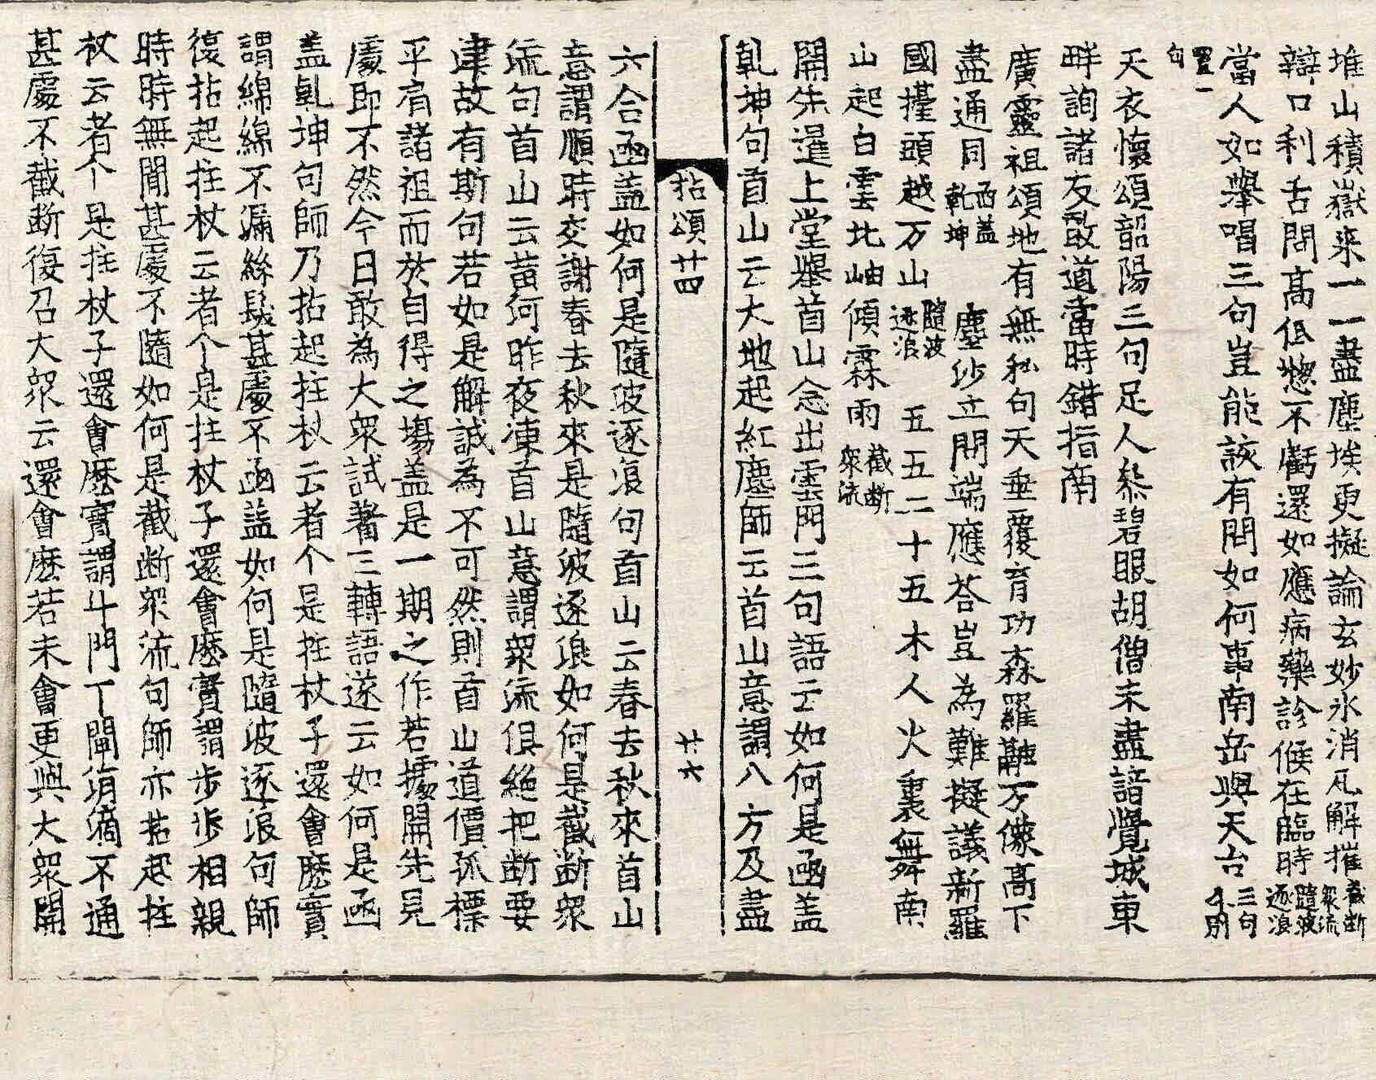 堆山積嶽来一一盡塵埃更擬論玄妙氷消凡解摧截断衆流
辯口利舌問高低惣不虧還如應病藥診候在臨時隨波逐浪
當人如舉唱三句豈能該有問如何事南岳與天台三句
句
天衣懐頌韶陽三句足人叅碧眼胡僧未盡諳覺城東
畔詢諸友敢道當時錯指南
廣靈祖頌地有無私句天垂覆育功森羅融万像高下
盡通同函盖乾坤 塵沙立開端應荅豈為難擬議新羅
國擡頭越万山隨波逐浪 五五二十五木人火裏舞南
山起白雲北岫傾霖雨截断衆流
開先暹上堂舉首山念出雲門三句語云如何是函盖
乾坤句首山云大地起紅塵師云首山意謂八方及盡
拈頌廿四 廿六
六合函盖如何是隨波逐浪句首山云春去秋來首山
意謂順時交謝春去秋來是隨波逐浪如何是截断衆
流句首山云黄河昨夜凍首山意謂衆流俱絶把断要
津故有斯句若如是解誠為不可然則首山道價孤標
平肩諸祖而於自得之場盖是一期之作若據開先見
處即不然今日敢為大衆試著三轉語遂云如何是函
盖乾坤句師乃拈起拄杖云者个是拄杖子還會麽實
謂綿綿不漏絲髮甚處不函盖如何是隨波逐浪句師
復拈起拄杖云者个是拄杖子還會麽實謂步步相親
時時無間甚處不隨如何是截断衆流句師亦拈起拄
杖云者个是拄杖子還會麽實謂斗門丁閘涓滴不通
甚處不截断復召大衆云還會麽若未會更與大衆開